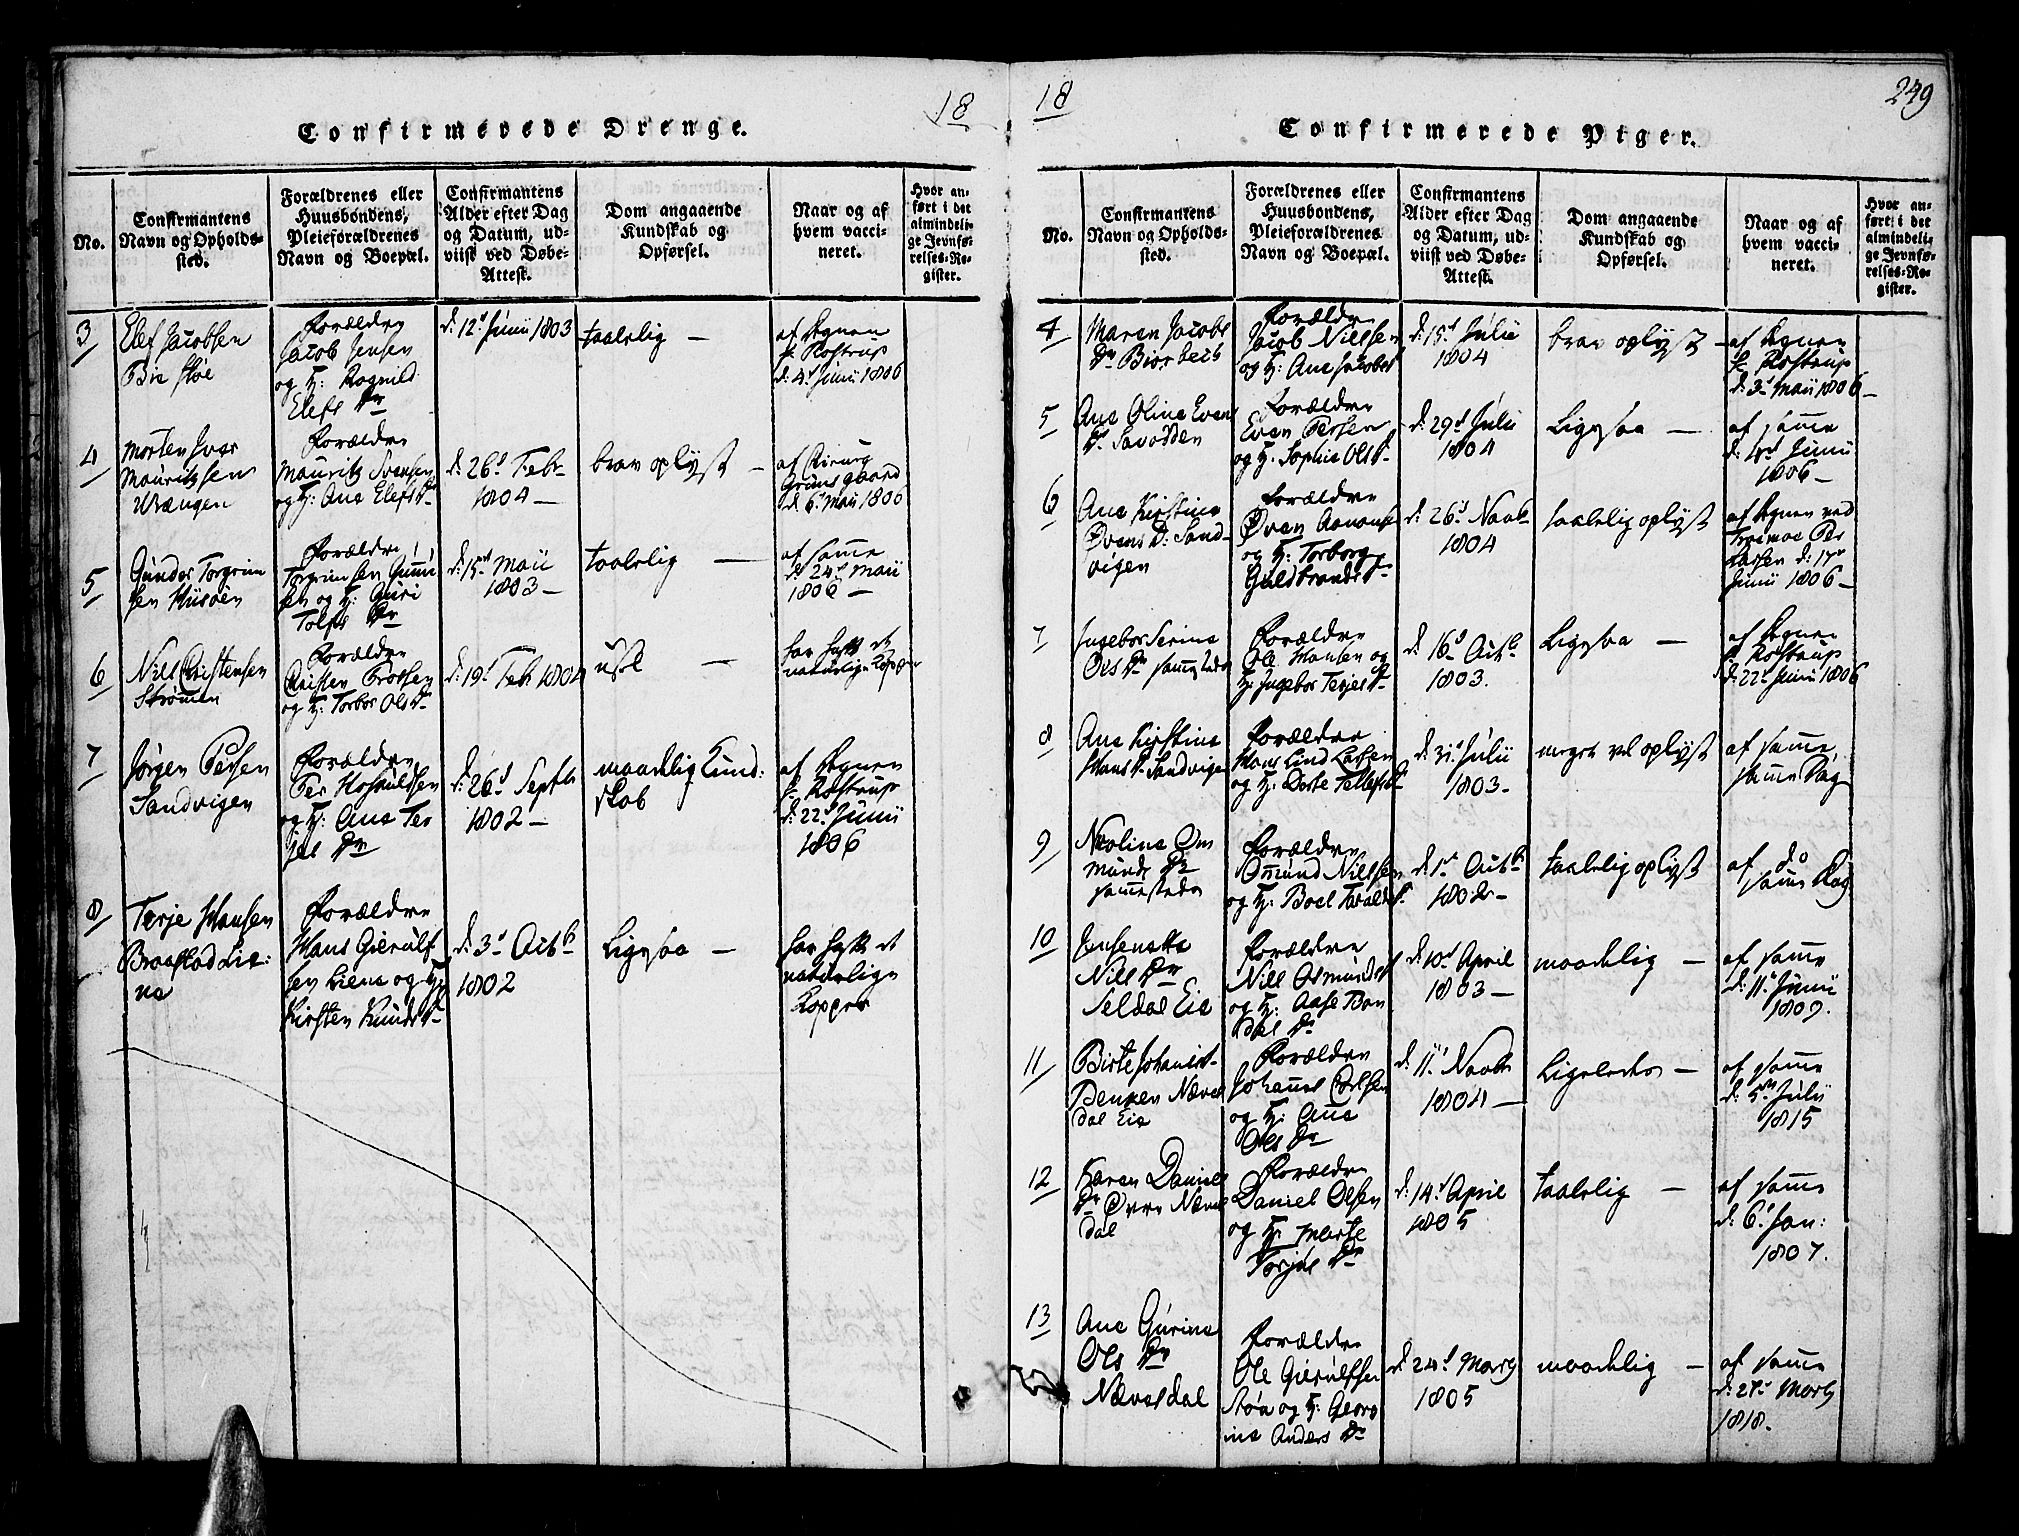 18
Confirmerede Drenge.
No.
Confirmantens
Navn og Opholds-
sted.
Forældrenes eller
Huusbondens,
Pleieforældrenes
Navn og Boepæl.
Confirmantens
Alder efter Dag
og Datum, ud-
viist ved Døbe-
Attest.
Dom angaaende
Kundskab og
Opførsel.
Naar og af
hvem vacci-
neret.
Hvor an-
ført i det
almindeli-
ge Jevnfø-
relses-Re-
gister.
3
Elef Jacobsen
Bie
Forældre
Jacob Jensen
og H: Ragnild
Elefs Dr
d: 12t Junii 1803
taalelig —
af Degnen
Hr Rostrup
d: 4d Junii 1806
4
Morten Iver
Mauritzsen
Wrængen
Forældre
Mauritz Svensen
og H: Ane Elefs Dr
d: 26d Febr
1804 —
brav oplyst —
af Chirurg
Grimsgaard
d 6t Maii 1806
5
Gunder Torgrim
sen Hiisøen
Forældre
Torgrimsen
sen og H: Guri
Dr
d: 15de Maii
1803 —
taalelig —
af samme
d: 24d Maii
1806 —
6
Niels Christensen
Strømmen
Forældre
Christen
og H: Torbor Ols Dr
d: 19d Febr 1804
—
har hafft de
naturlige Kopper
7
Jørgen Persen
Sandvigen
Forældre
Per
og H: Ane Ter
jes Dr
d: 26d Septb
1802 —
maadelig Kund:
skab
af Degnen
Hr Rostrup
d: 22d Junii
1806
8
Terje Hansen
Braastad Lie:
ne
Forældre
Hans Gierulf
sen Liene og H:
Kirsten Knuds Dr
d: 3d Octb
1802
Ligesaa —
har hafft de
naturlige
Kopper
18
249
Confirmerede Piger.
No.
Confirmantens
Navn og Opholds-
sted.
Forældrenes eller
Huusbondens,
Pleieforældrenes
Navn og Boepæl.
Confirmantens
Alder efter Dag
og Datum, ud-
viist ved Døbe-
Attest.
Dom angaaende
Kundskab og
Opførsel.
Naar og af
hvem vacci-
neret.
Hvor an-
ført i det
almindeli-
ge Jevnfø-
relses-Re-
gister.
4
Maren Jacobs
Dr
Forældre
Jacob Nielsen
og H: Ane Jacobs Dr
d: 15d Julii
1804
brav oplyst —
af Degnen
Hr Rostrup
d: 3d Maii 1806 —
5
Ane Oline Evens
Dr Savodden
Forældre
Even Persen
og H: Sophie Ols Dr
d: 29d Julii
1804
Ligesaa —
af samme
d: Junii
1806 —
6
Ane Kirstine
Øvens Dr Sand-
vigen
Forældre
Øven Aanonsen
og H: Torborg
Guldbrands Dr
d: 26d Novb
1804
taalelig oplyst
af Degnen ved
Tromøe Per
Lassen d: 17de
Junii 1806 —
7
Ingebor Serine
Ols Dr sammesteds
Forældre
Ole Hansen og
H: Ingebor Terjes Dr
d: 16d Octb
1803.
Ligesaa —
af Degnen
Hr Rostrup
d: 22d Junii 1806
8
Ane Kirstine
Hans Dr Sandvigen
Forældre
Hans Lind Lassen
og H: Dorte Tellefs Dr
d: 31d Julii
1803 —
meget vel oplyst
af samme
samme Dag
9
Nicoline Om
munds Dr
sammesteds
Forældre
Ommund Nielsen
og H: Boel Taralds Dr
d: 1ste Octb
1802 —
taalelig oplyst
af do
samme Dag
10
Jensenette
Niels Dr
Seldal Eie
Forældre
Niels Osmundsen
og H: Aase Bon
dal Dr
d: 10d April
1803 —
maadelig —
af samme
d: 11t Junii
1809.
11
Birte Johannes Dr
Næves
dal Eie
Forældre
Johannes
og H: Ane
Ols Dr
d: 11t Novb
1804 —
Ligeledes —
af samme
d: 5te July
1815
12
Karen Daniels
Dr Øvre Næves
dal
Forældre
Daniel Olsen
og H: Marte
Torjus Dr
d: 14d April
1805
taalelig —
af samme
d: 6t Jan:
1807.
13
Ane Gurine
Ols Dr
Nævesdal
Forældre
Ole Gierulfsen
Støa og H: Georg
ine Anders Dr
d: 24d Marty
1805
maadelig —
af samme
d: 27d Marty
1818.